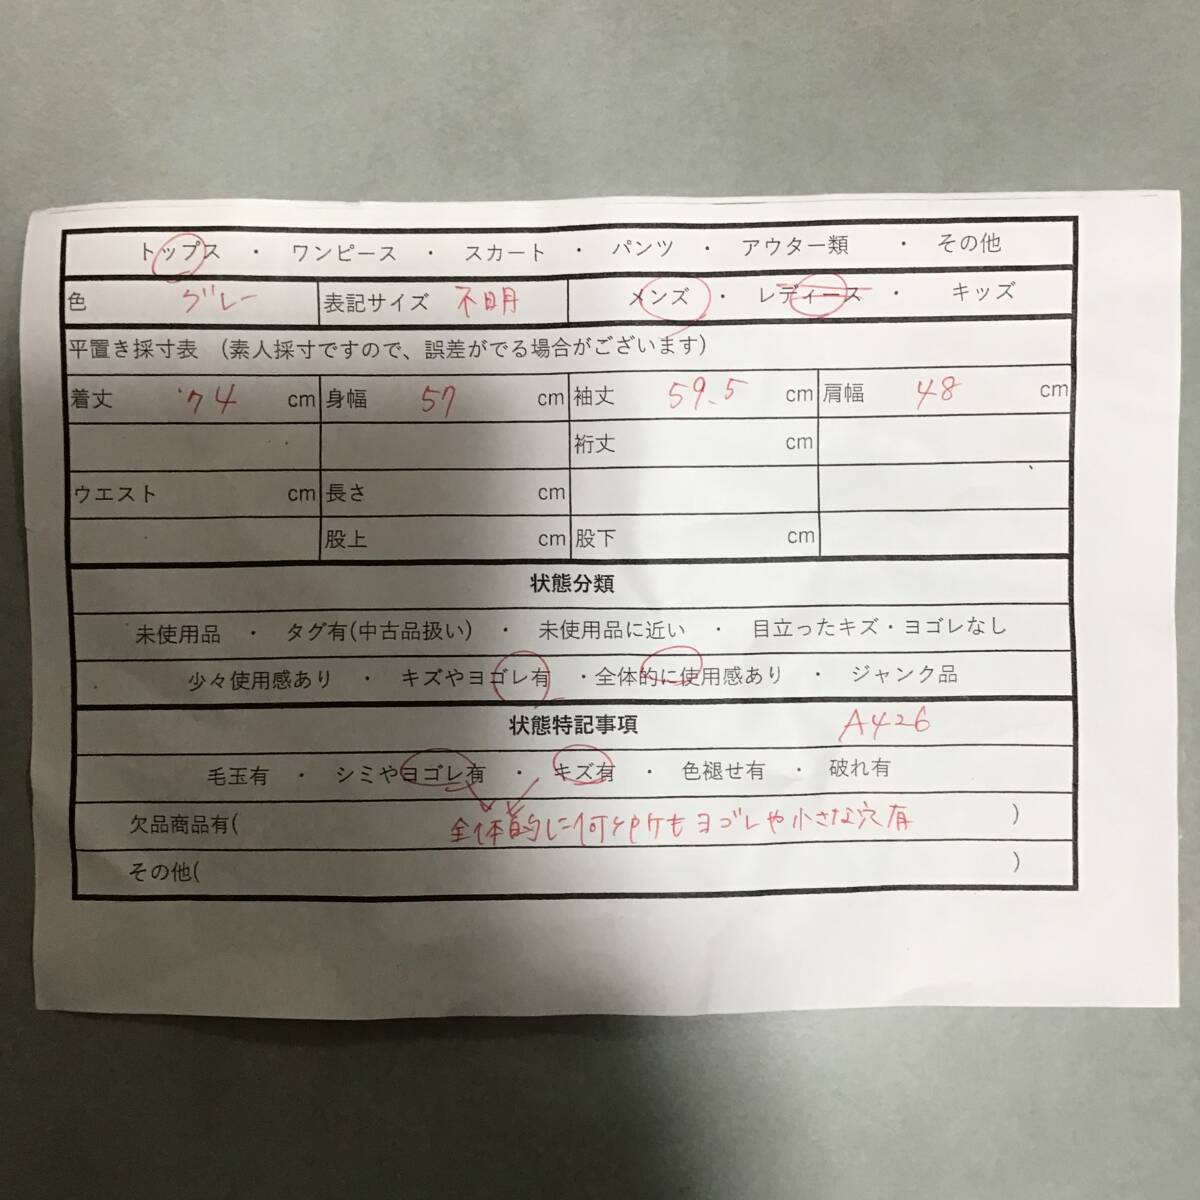 トップス ・ ワンピース ・ スカート ・ パンツ ・ アウター類 ・ その他
色 グレー 表記サイズ 不明 メンズ ・ レディース ・ キッズ
平置き採寸表 (素人採寸ですので、誤差がでる場合がございます)
着丈 74 cm 身幅 57 cm 袖丈 59.5 cm 肩幅 48 cm
裄丈 cm
ウエスト cm 長さ cm
股上 cm 股下 cm
状態分類
未使用品 ・ タグ有(中古品扱い) ・ 未使用品に近い ・ 目立ったキズ・ヨゴレなし
少々使用感あり ・ キズやヨゴレ有 ・全体的に使用感あり ・ ジャンク品
状態特記事項 A426
毛玉有 ・ シミやヨゴレ有 ・ キズ有 ・ 色褪せ有 ・ 破れ有
欠品商品有( 全体的に何ケ所もヨゴレや小さな穴有 )
その他( )